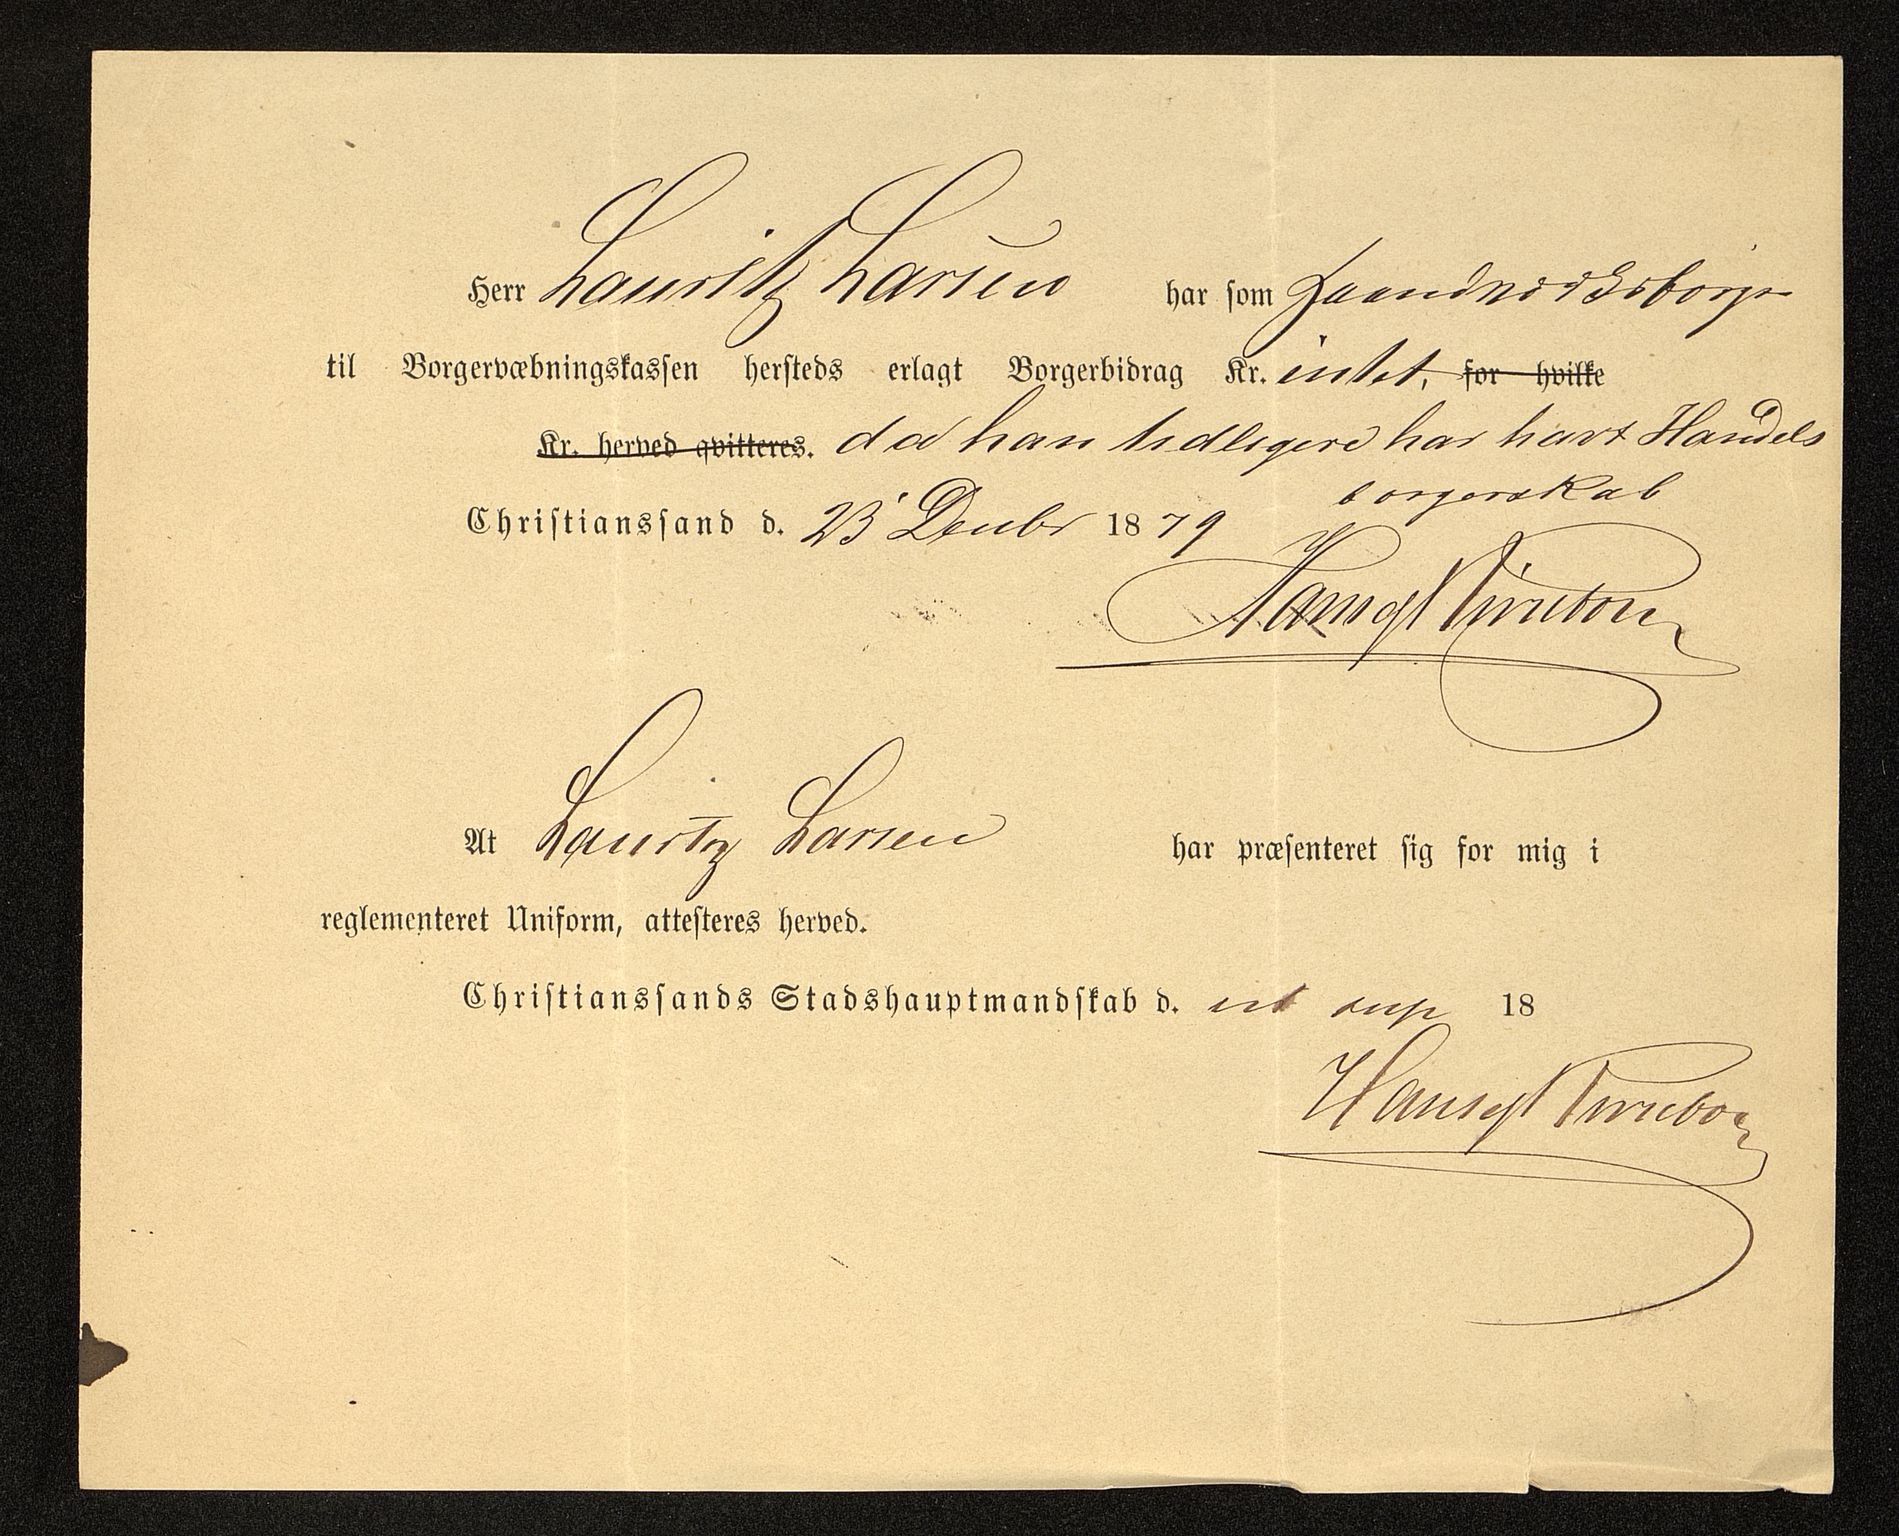 Herr Lauritz Larsen har som Haandværksborger
til Borgervæbningskassen hersteds erlagt Borgerbidrag Kr. intet, for hvilke
Kr. herved qvitteres. da han tidligere har havt Handels
borgerskab
Christianssand d. 23 Decbr 1879
At Lauritz Larsen har præsenteret sig for mig i
reglementeret Uniform, attesteres herved.
Christianssands Stadshauptmandskab d. ut sup 18